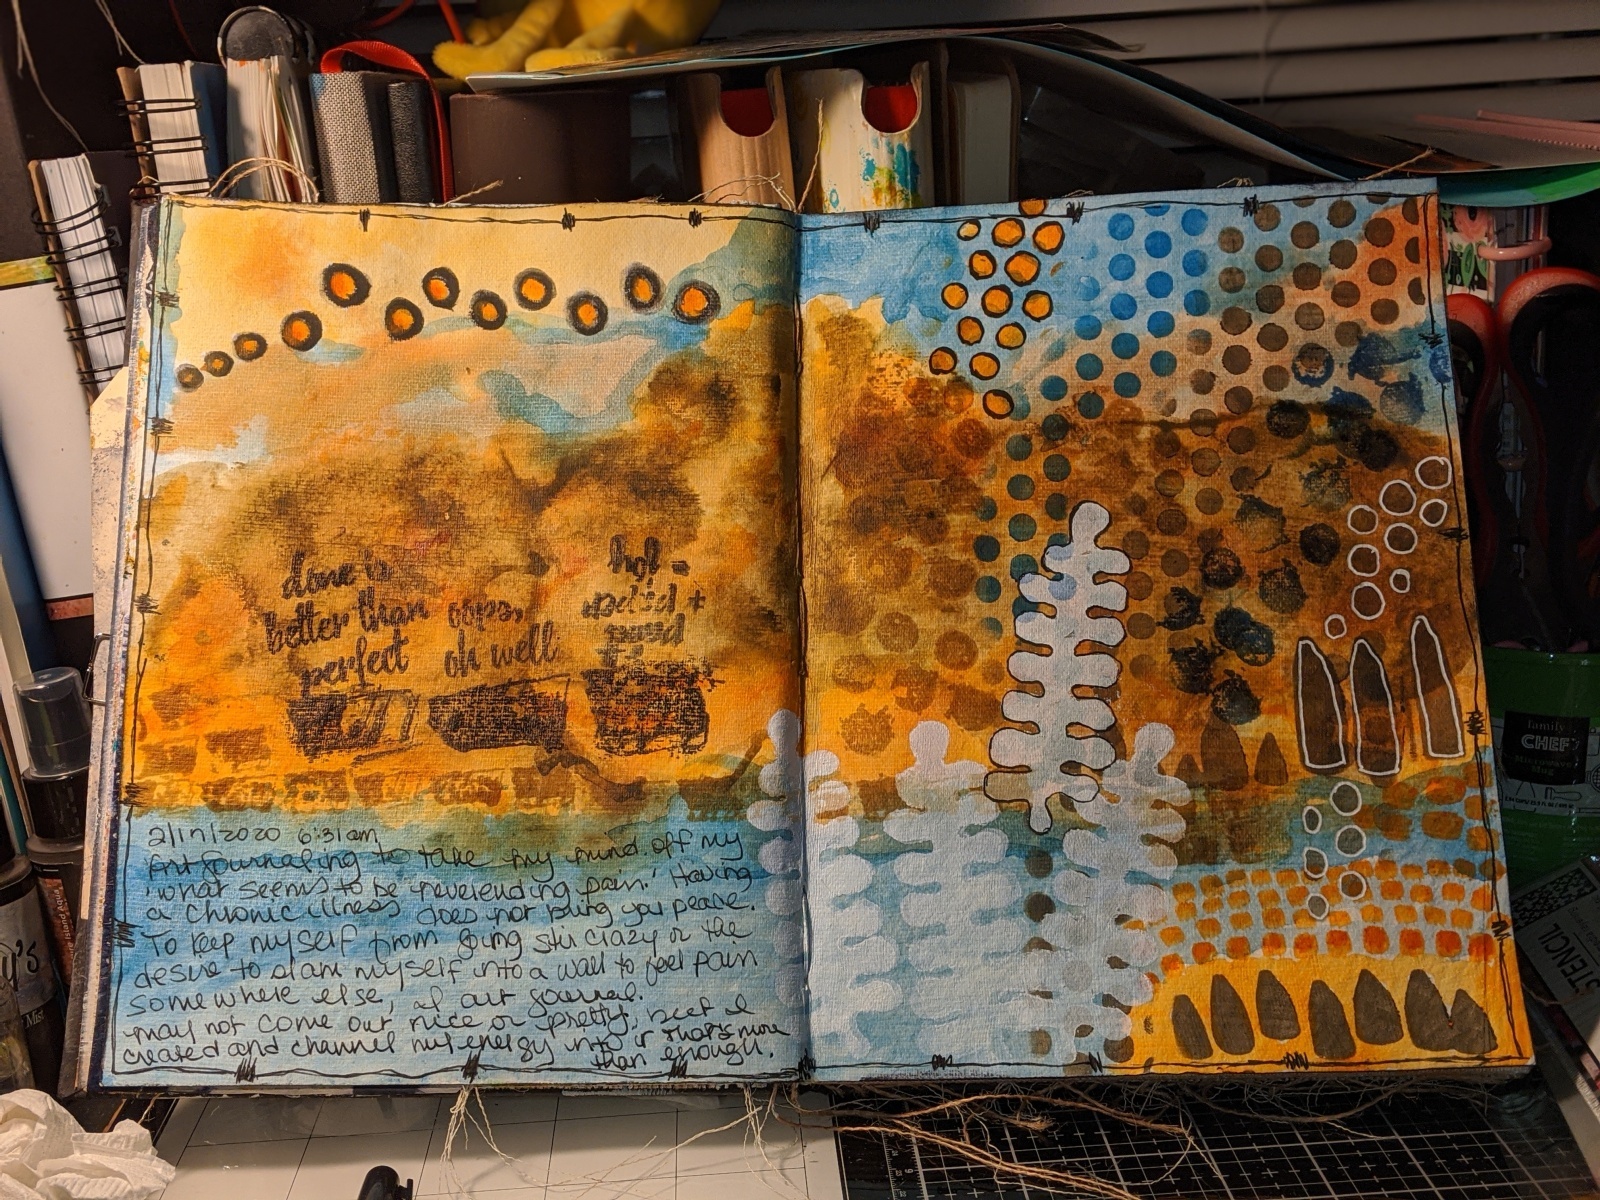 done is
better than
perfect
oops,
oh well
2/17/2020 6:31am
Art journaling to take my mind off my
"what seems to be neverending pain." Having
a chronic illness does not bring you peace.
To keep myself from going stir crazy or the
desire to slam myself into a wall to feel pain
somewhere else, I art journal.
may not come out nice or pretty, but I
created and channel my energy into it That's more
than enough.
family
CHEF
Microwave
Mug
STENCIL
Mist